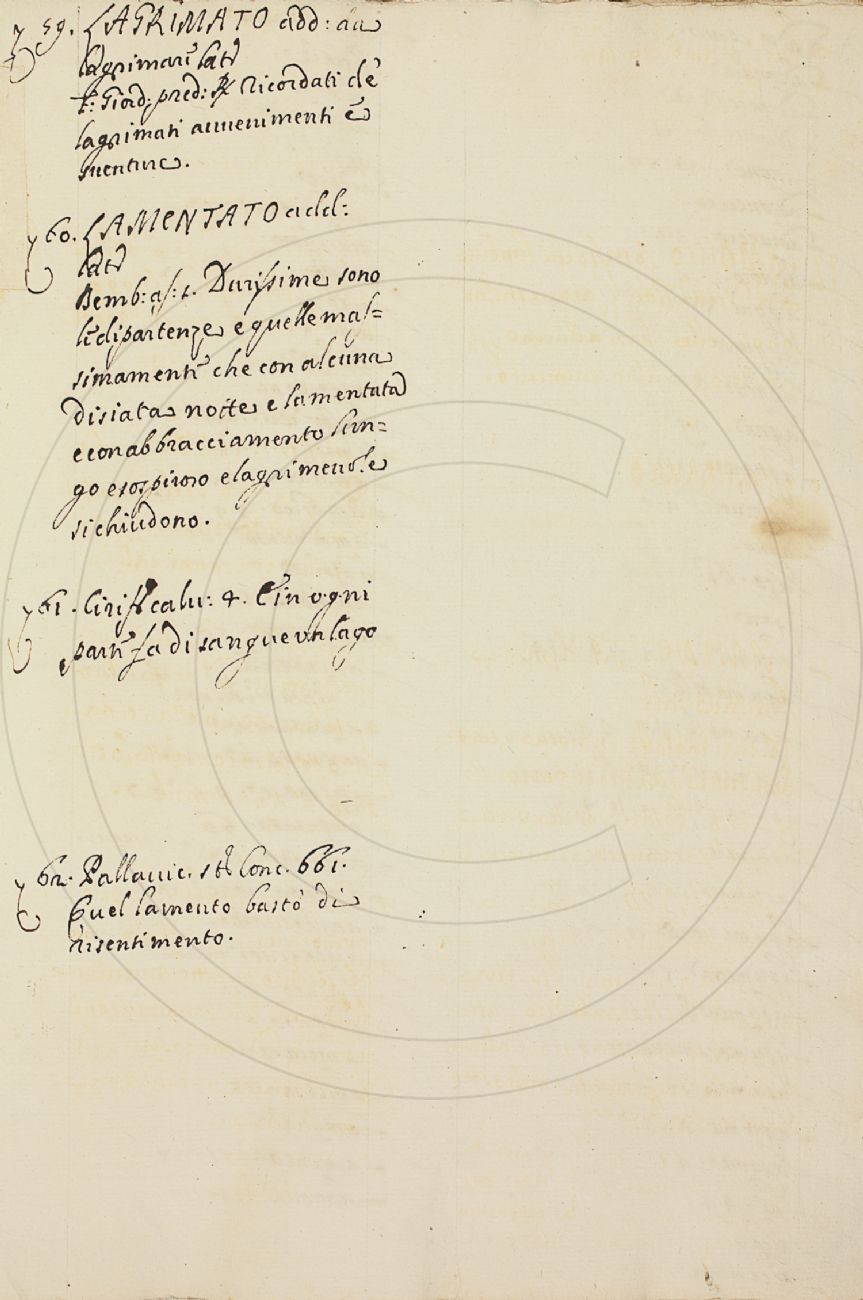 59. LAGRIMATO add: da
lagrimare lat:
F. Giord: pred: R Ricordati de
lagrimati avvenimenti e
sventure.
60. LAMENTATO add:
lat:
Bemb: as: 1. Durissime sono
le dipartenze e quelle mas=
simamente che con alcuna
disiata notte e lamentata
e con abbracciamento lun=
go e sospiroso e lagrimevole
si chiudono.
61. Ciriff calv: 4. E in ogni
parte fa di sangue vn lago
62. Pallavic. st. Conc. 661.
Quel lamento bastò di
risentimento.